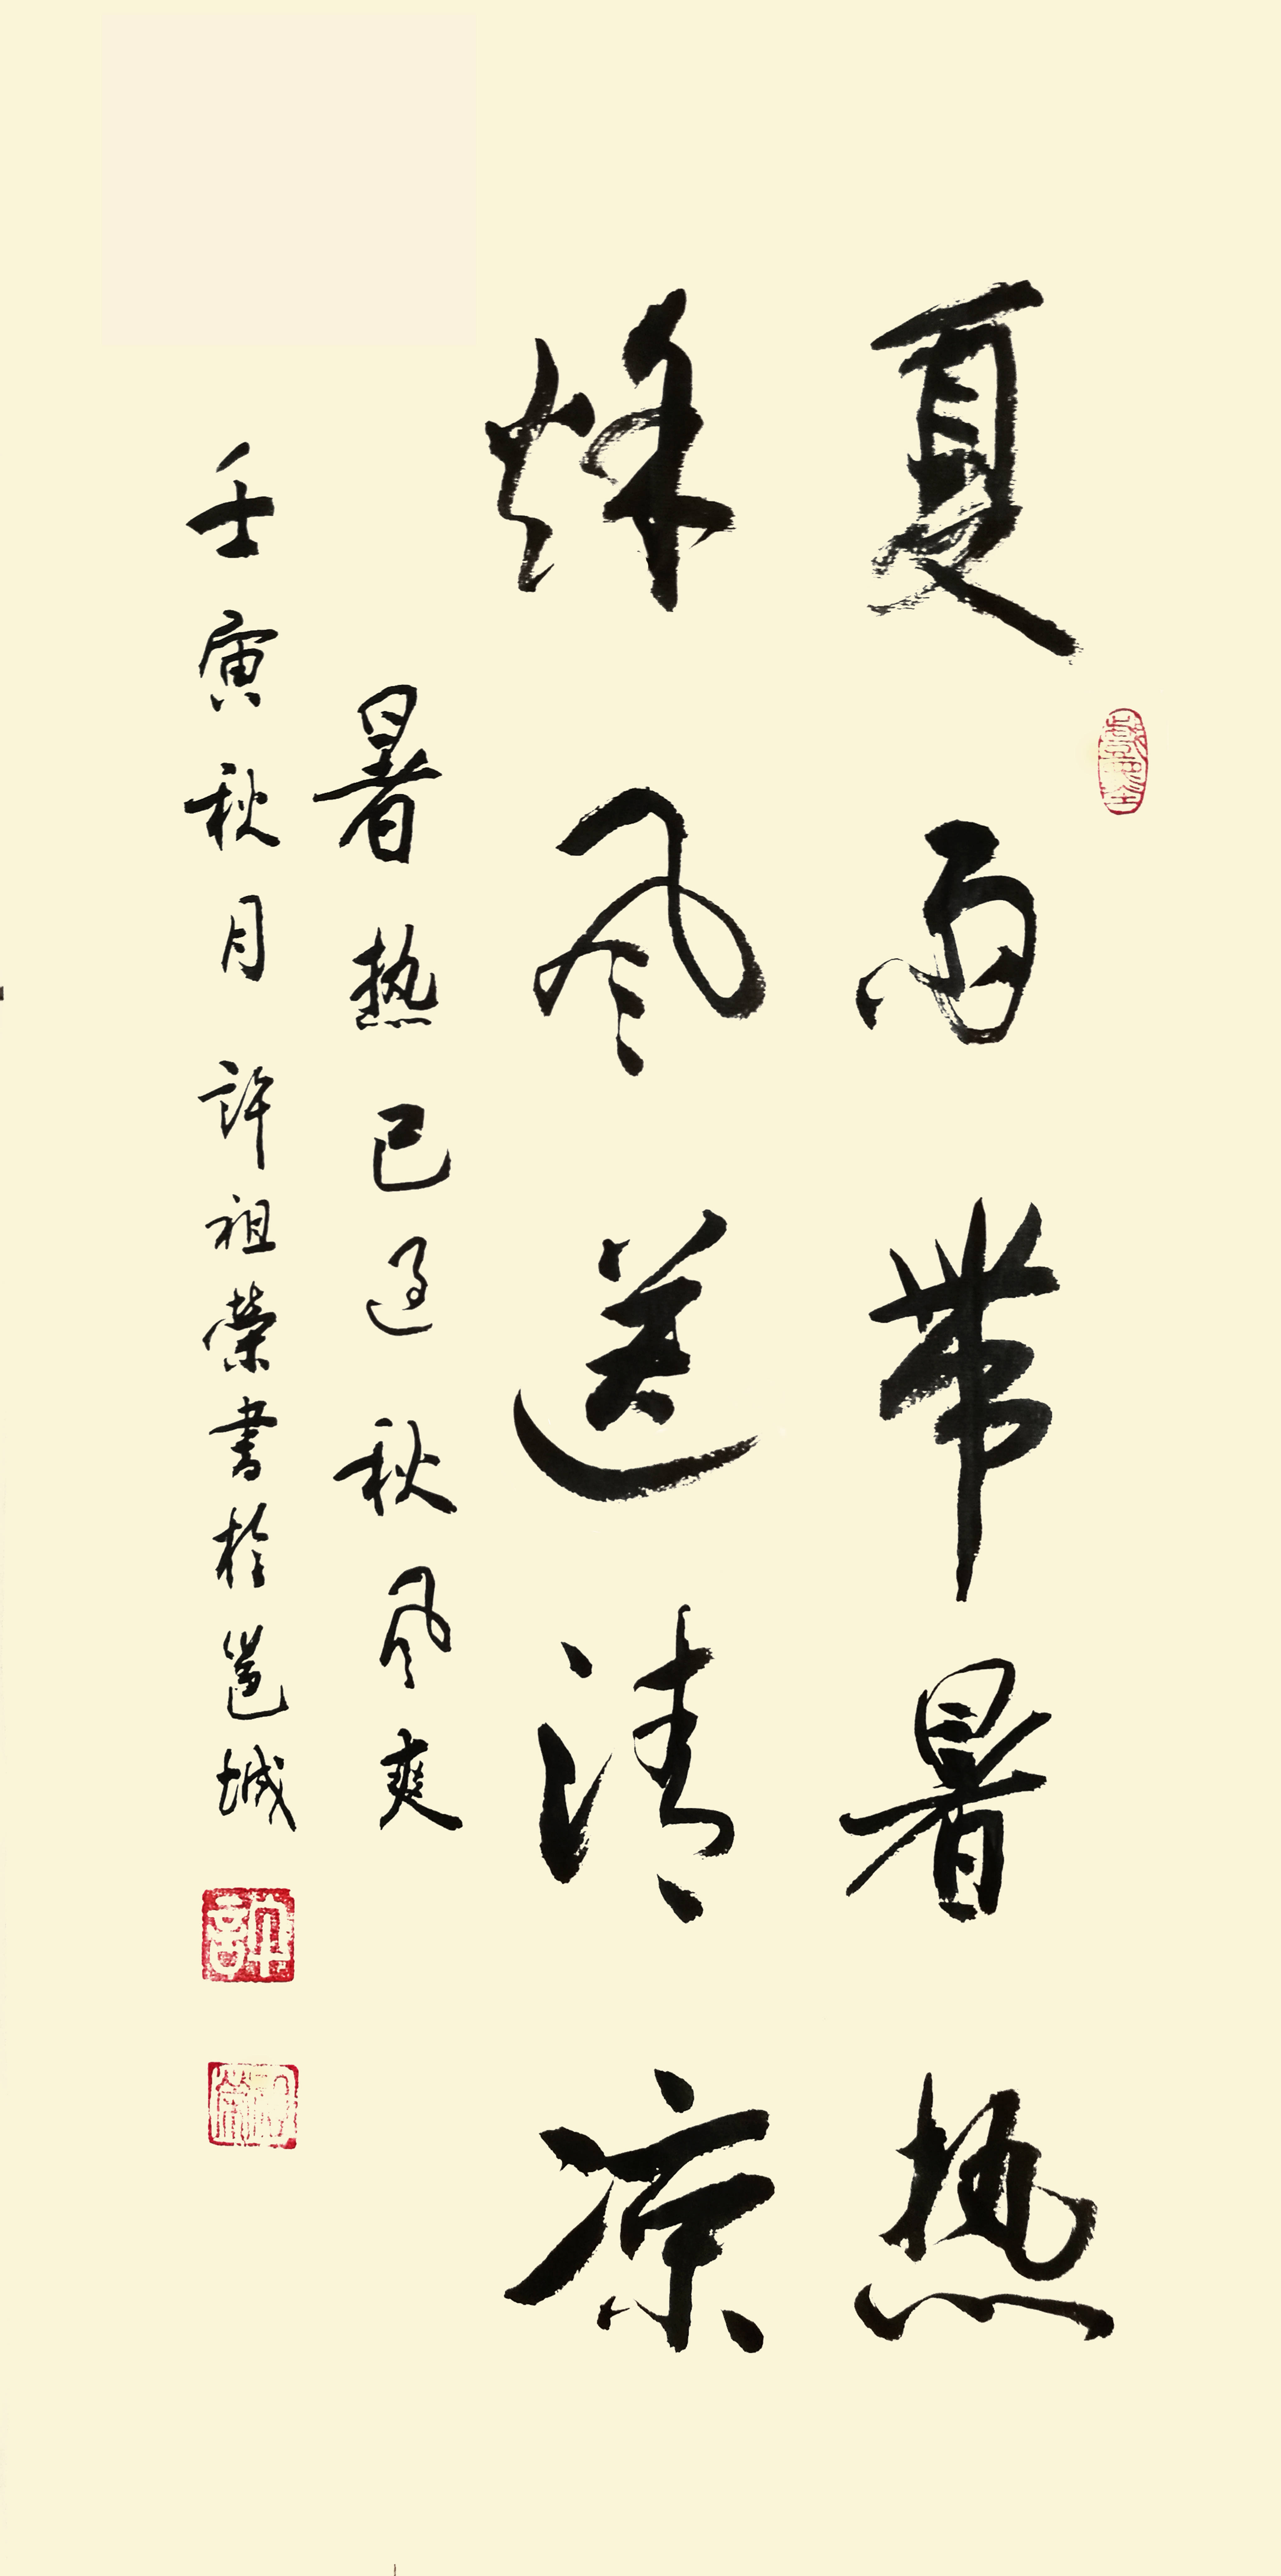 夏雨带暑热
秌风送清凉
暑热已过秋风爽
壬寅秋月許祖榮書於邕城
許
祖榮